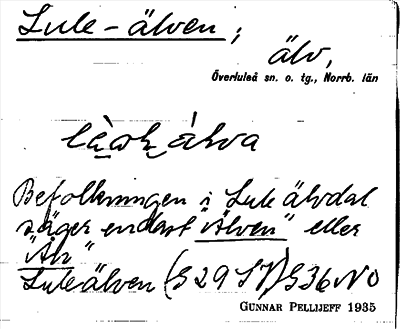 Lule-älven;
älv,
Överluleå sn. o. tg., Norrb. län
álva
Befolkningen i Lule älvdal
säger endast "Älven" eller
"Än"
Luleälven (S 29 SV) S 36 NO
GUNNAR PELLIJEFF 1935